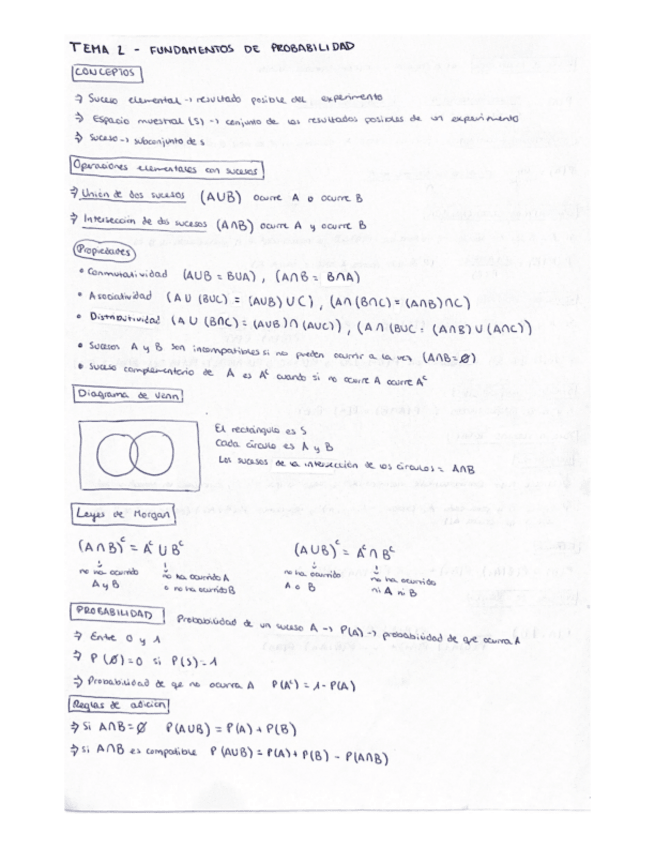 TEMA 2 - FUNDAMENTOS DE PROBABILIDAD
CONCEPTOS
→ Suceso elemental → resultado posible del experimento
→ Espacio muestral (S) → conjunto de los resultados posibles de un experimento
→ Suceso → subconjunto de S
Operaciones elementales con sucesos
→ Unión de dos sucesos (A∪B) ocurre A o ocurre B
→ Intersección de dos sucesos (A∩B) ocurre A y ocurre B
Propiedades
• Conmutatividad (A∪B = B∪A), (A∩B = B∩A)
• Asociatividad (A∪(B∪C) = (A∪B)∪C), (A∩(B∩C) = (A∩B)∩C)
• Distributividad (A∪(B∩C) = (A∪B)∩(A∪C)), (A∩(B∪C = (A∩B)∪(A∩C))
• Sucesos A y B son incompatibles si no pueden ocurrir a la vez (A∩B=∅)
• Suceso complementario de A es Aᶜ cuando si no ocurre A ocurre Aᶜ
Diagrama de Venn
El rectángulo es S
Cada círculo es A y B
Los sucesos de la intersección de los círculos = A∩B
Leyes de Morgan
(A∩B)ᶜ = Aᶜ∪Bᶜ (A∪B)ᶜ = Aᶜ∩Bᶜ
no ha ocurrido no ha ocurrido A no ha ocurrido no ha ocurrido
A y B o no ha ocurrido B A o B ni A ni B
PROBABILIDAD Probabilidad de un suceso A → P(A) → probabilidad de que ocurra A
→ Entre 0 y 1
→ P(∅)=0 si P(S)=1
→ Probabilidad de qe no ocurra A P(Aᶜ) = 1 - P(A)
Reglas de adición
→ Si A∩B=∅ P(A∪B) = P(A) + P(B)
→ Si A∩B es compatible P(A∪B) = P(A) + P(B) - P(A∩B)